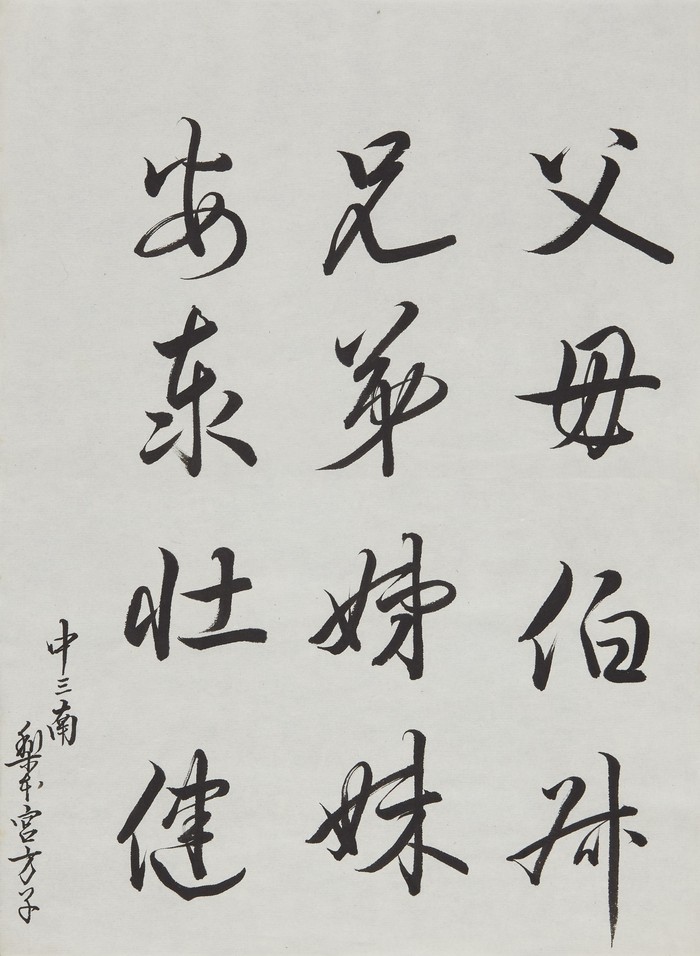 父母伯叔
兄弟姉妹
安泰壮健
中三南
梨本宮方子